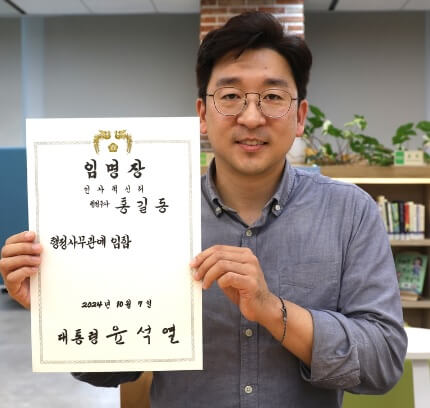 임명장
인사혁신처
행정주사 홍길동
행정사무관에 임함
2024년 10월 7일
대통령 윤석열